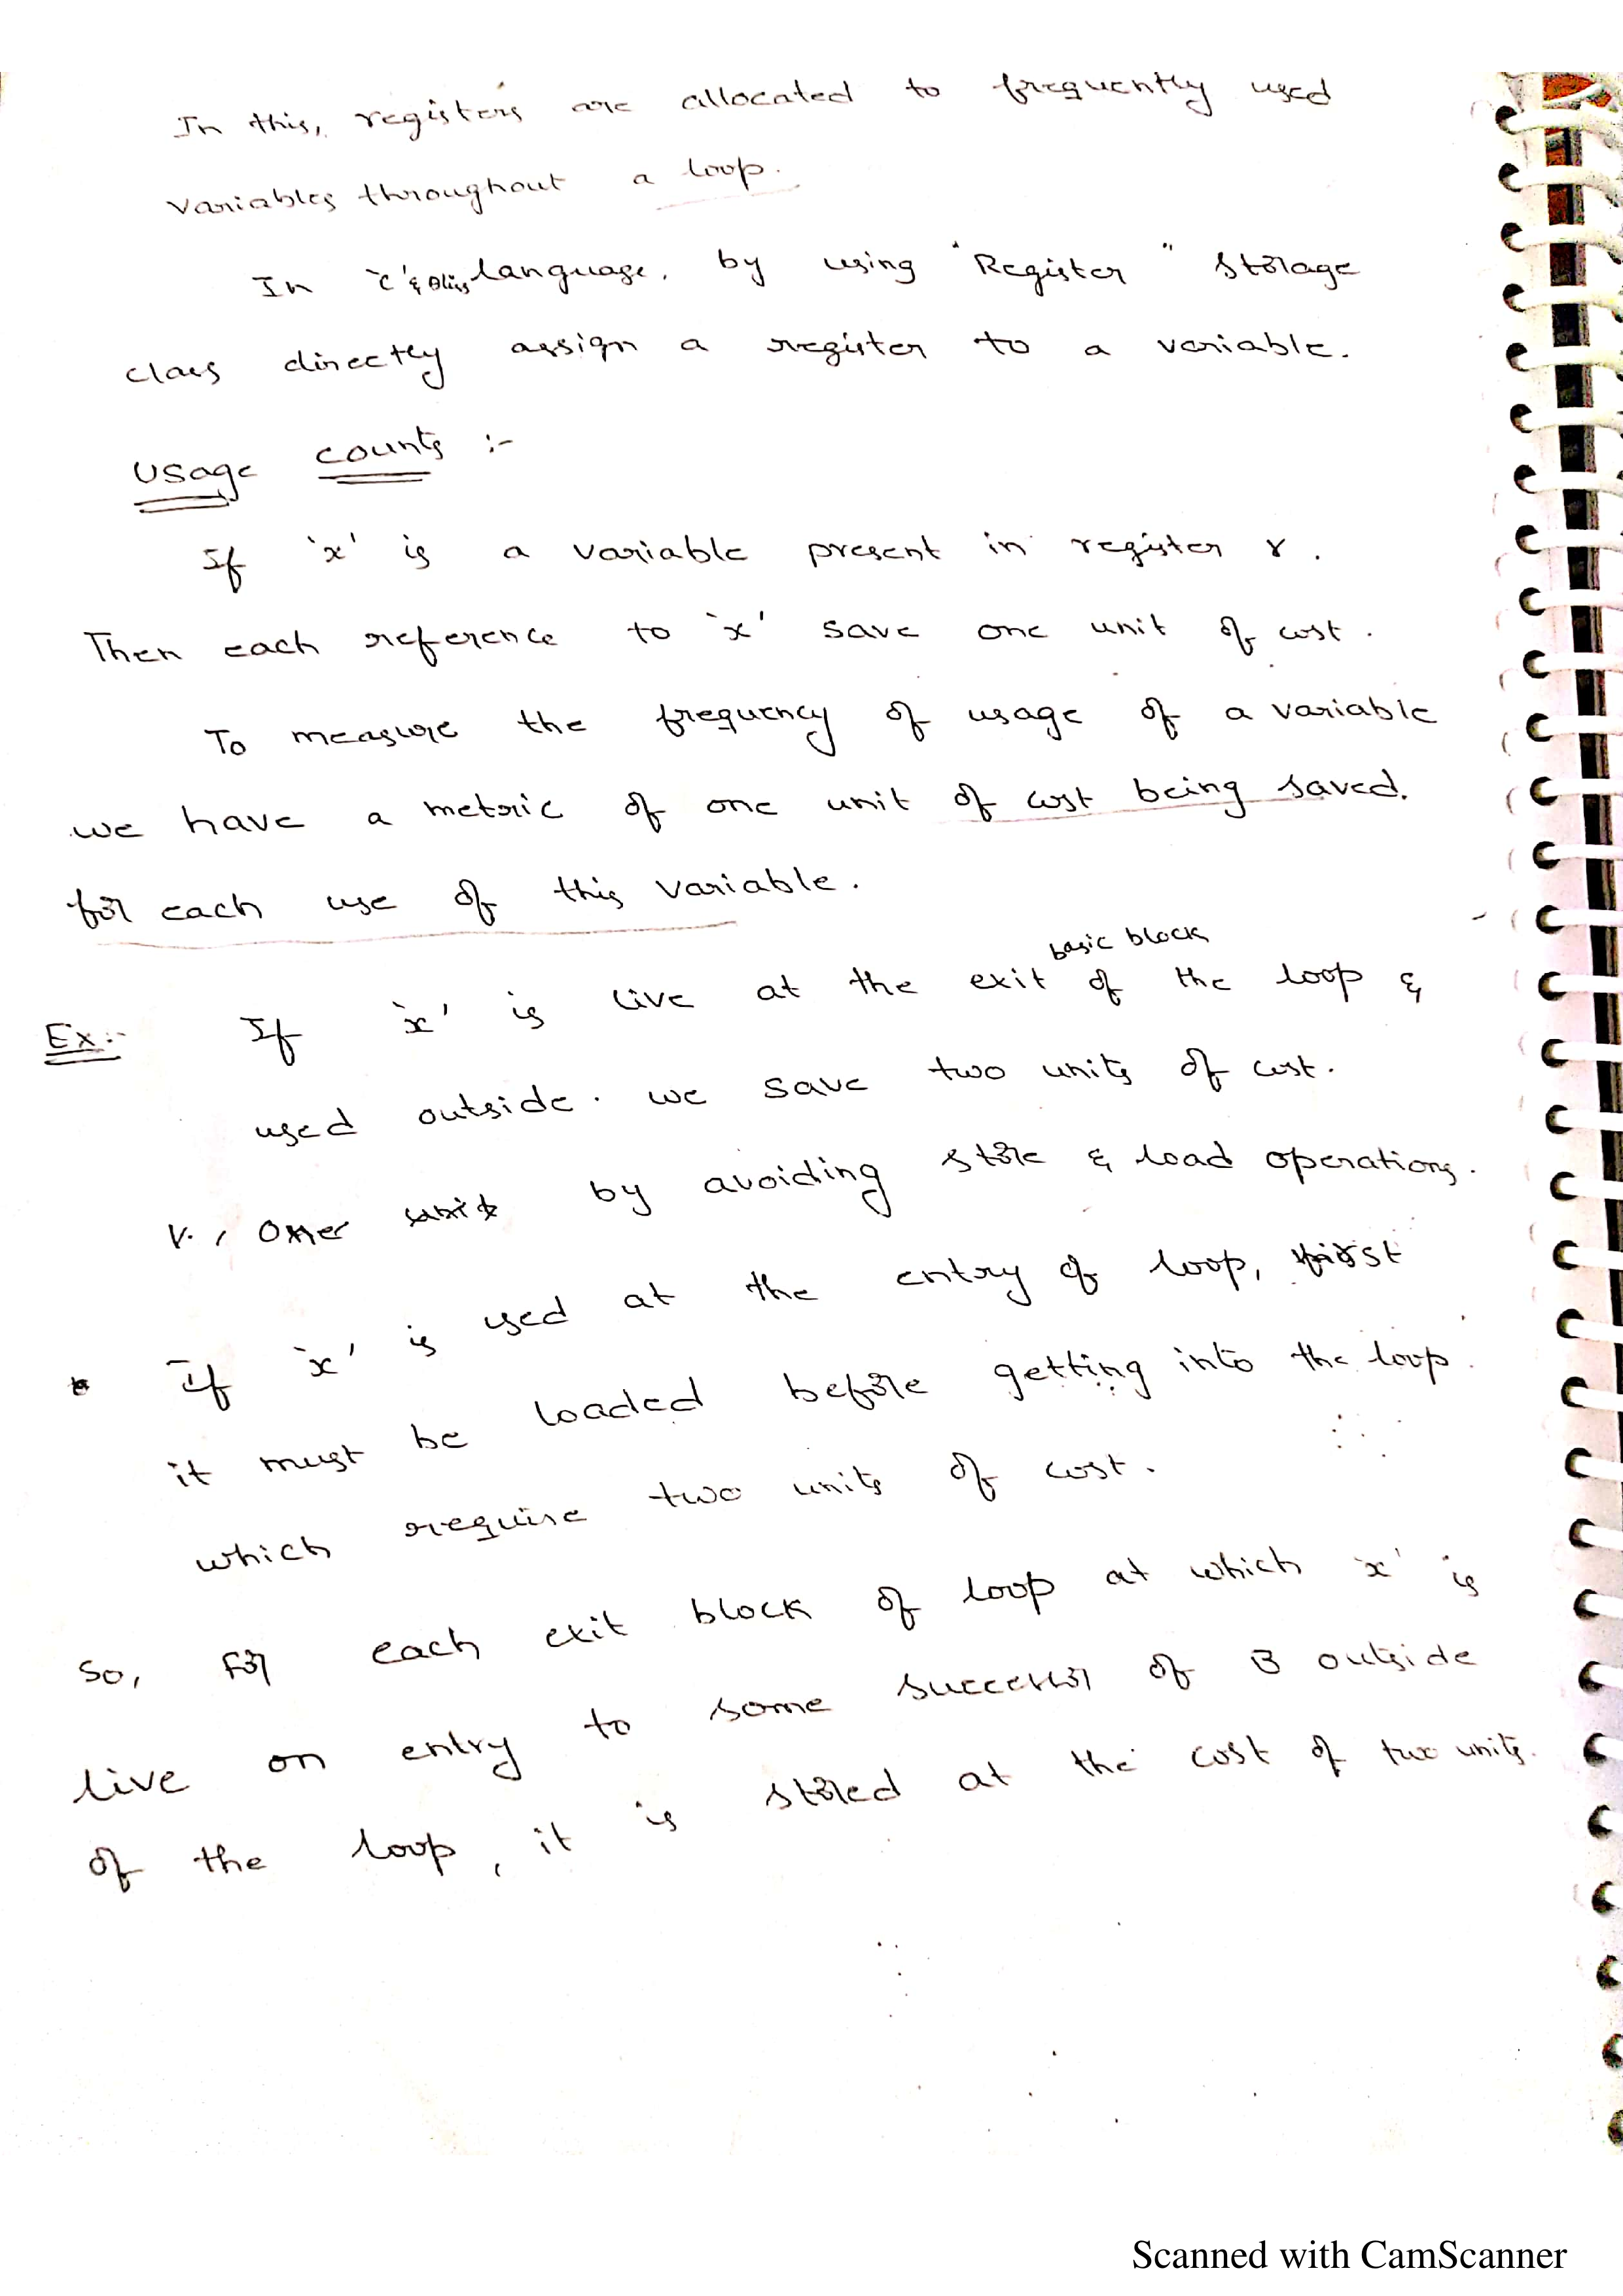 In this, registers are allocated to frequently used
variables throughout a loop.
In 'C' & Bliss language, by using "Register" storage
class directly assign a register to a variable.
Usage counts :-
If 'x' is a variable present in register r.
Then each reference to 'x' save one unit of cost.
To measure the frequency of usage of a variable
we have a metric of one unit of cost being saved.
for each use of this variable.
basic block
Ex:- If 'x' is live at the exit of the loop &
used outside. we save two units of cost.
by avoiding store & load operations.
* If 'x' is used at the entry of loop, first
it must be loaded before getting into the loop.
which require two units of cost.
So, For each exit block of loop at which 'x' is
live on entry to some successor of B outside
of the loop, it is stored at the cost of two units.
Scanned with CamScanner